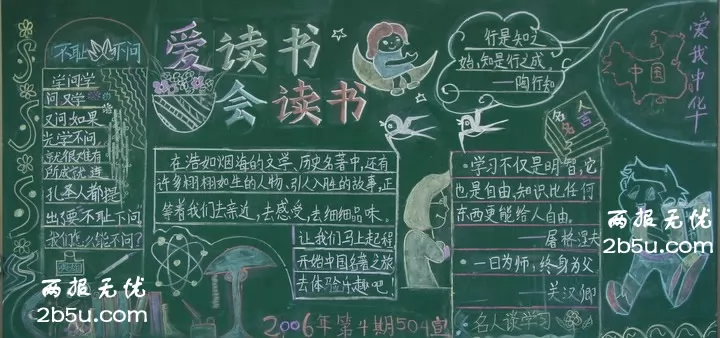 不耻下问
学问学
问又学
又问如果
光学不问
就很难有
所成就连
孔圣人都提
出要“不耻下问”
我们怎么能不问?
爱读书
会读书
在浩如烟海的文学、历史名著中,还有
许多栩栩如生的人物、引人入胜的故事,正
等着我们去亲近,去感受,去细细品味。
让我们马上起程
开始中国名著之旅
去体验乐趣吧!
2006年第4期504宣
行是知之
始,知是行之成
——陶行知
名人
名言
·学习不仅是明智,它
也是自由,知识比任何
东西更能给人自由。
——屠格涅夫
·一日为师,终身为父
——关汉卿
名人谈学习
爱我中华
中国
两报无忧
2b5u.com
两报无忧
2b5u.com